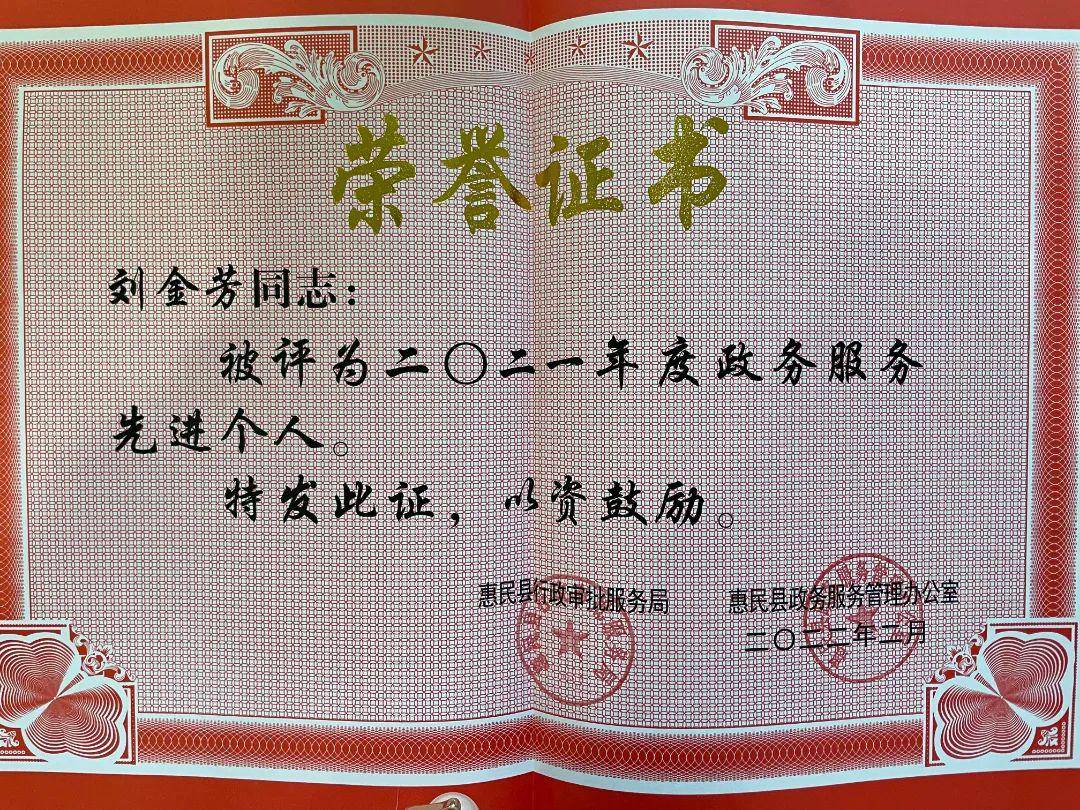 荣誉证书
刘金芳同志：
被评为二〇二一年度政务服务
先进个人。
特发此证，以资鼓励。
惠民县行政审批服务局 惠民县政务服务管理办公室
二〇二二年二月